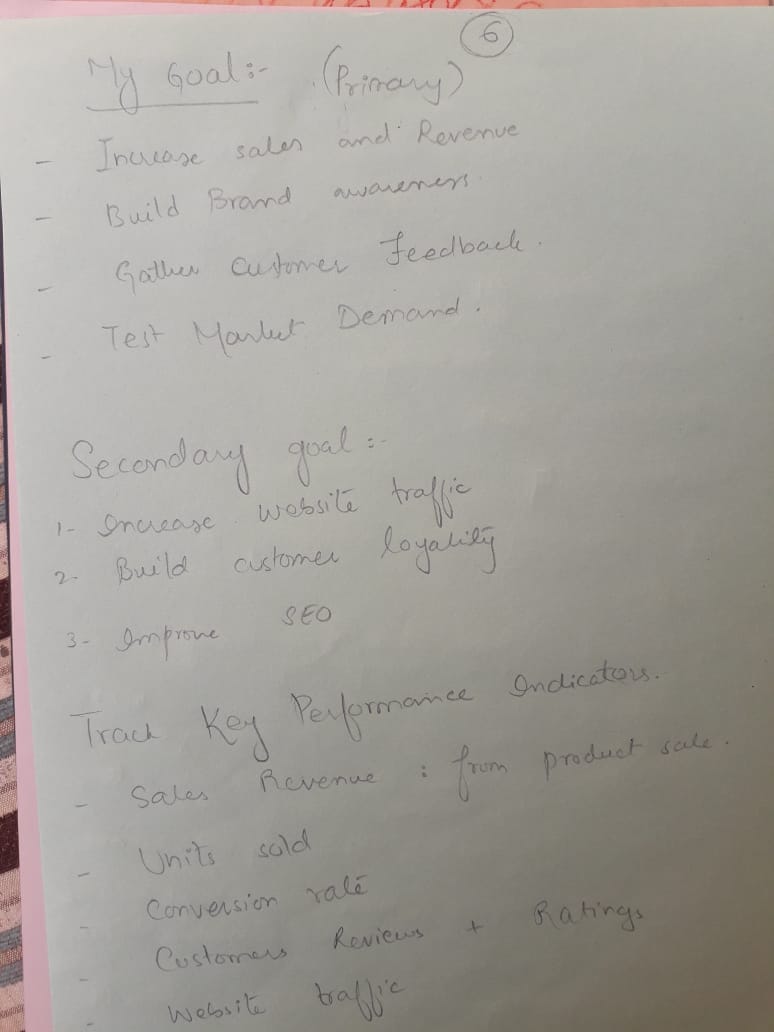 6
My Goal :- (Primary)
- Increase sales and Revenue
- Build Brand awareness.
- Gather Customer Feedback.
- Test Market Demand.
Secondary goal :-
1- Increase Website traffic
2- Build customer loyality
3- Improve SEO
Track Key Performance Indicators.
- Sales Revenue : from product sale.
- Units sold
- Conversion rate
- Customers Reviews + Ratings
- Website traffic